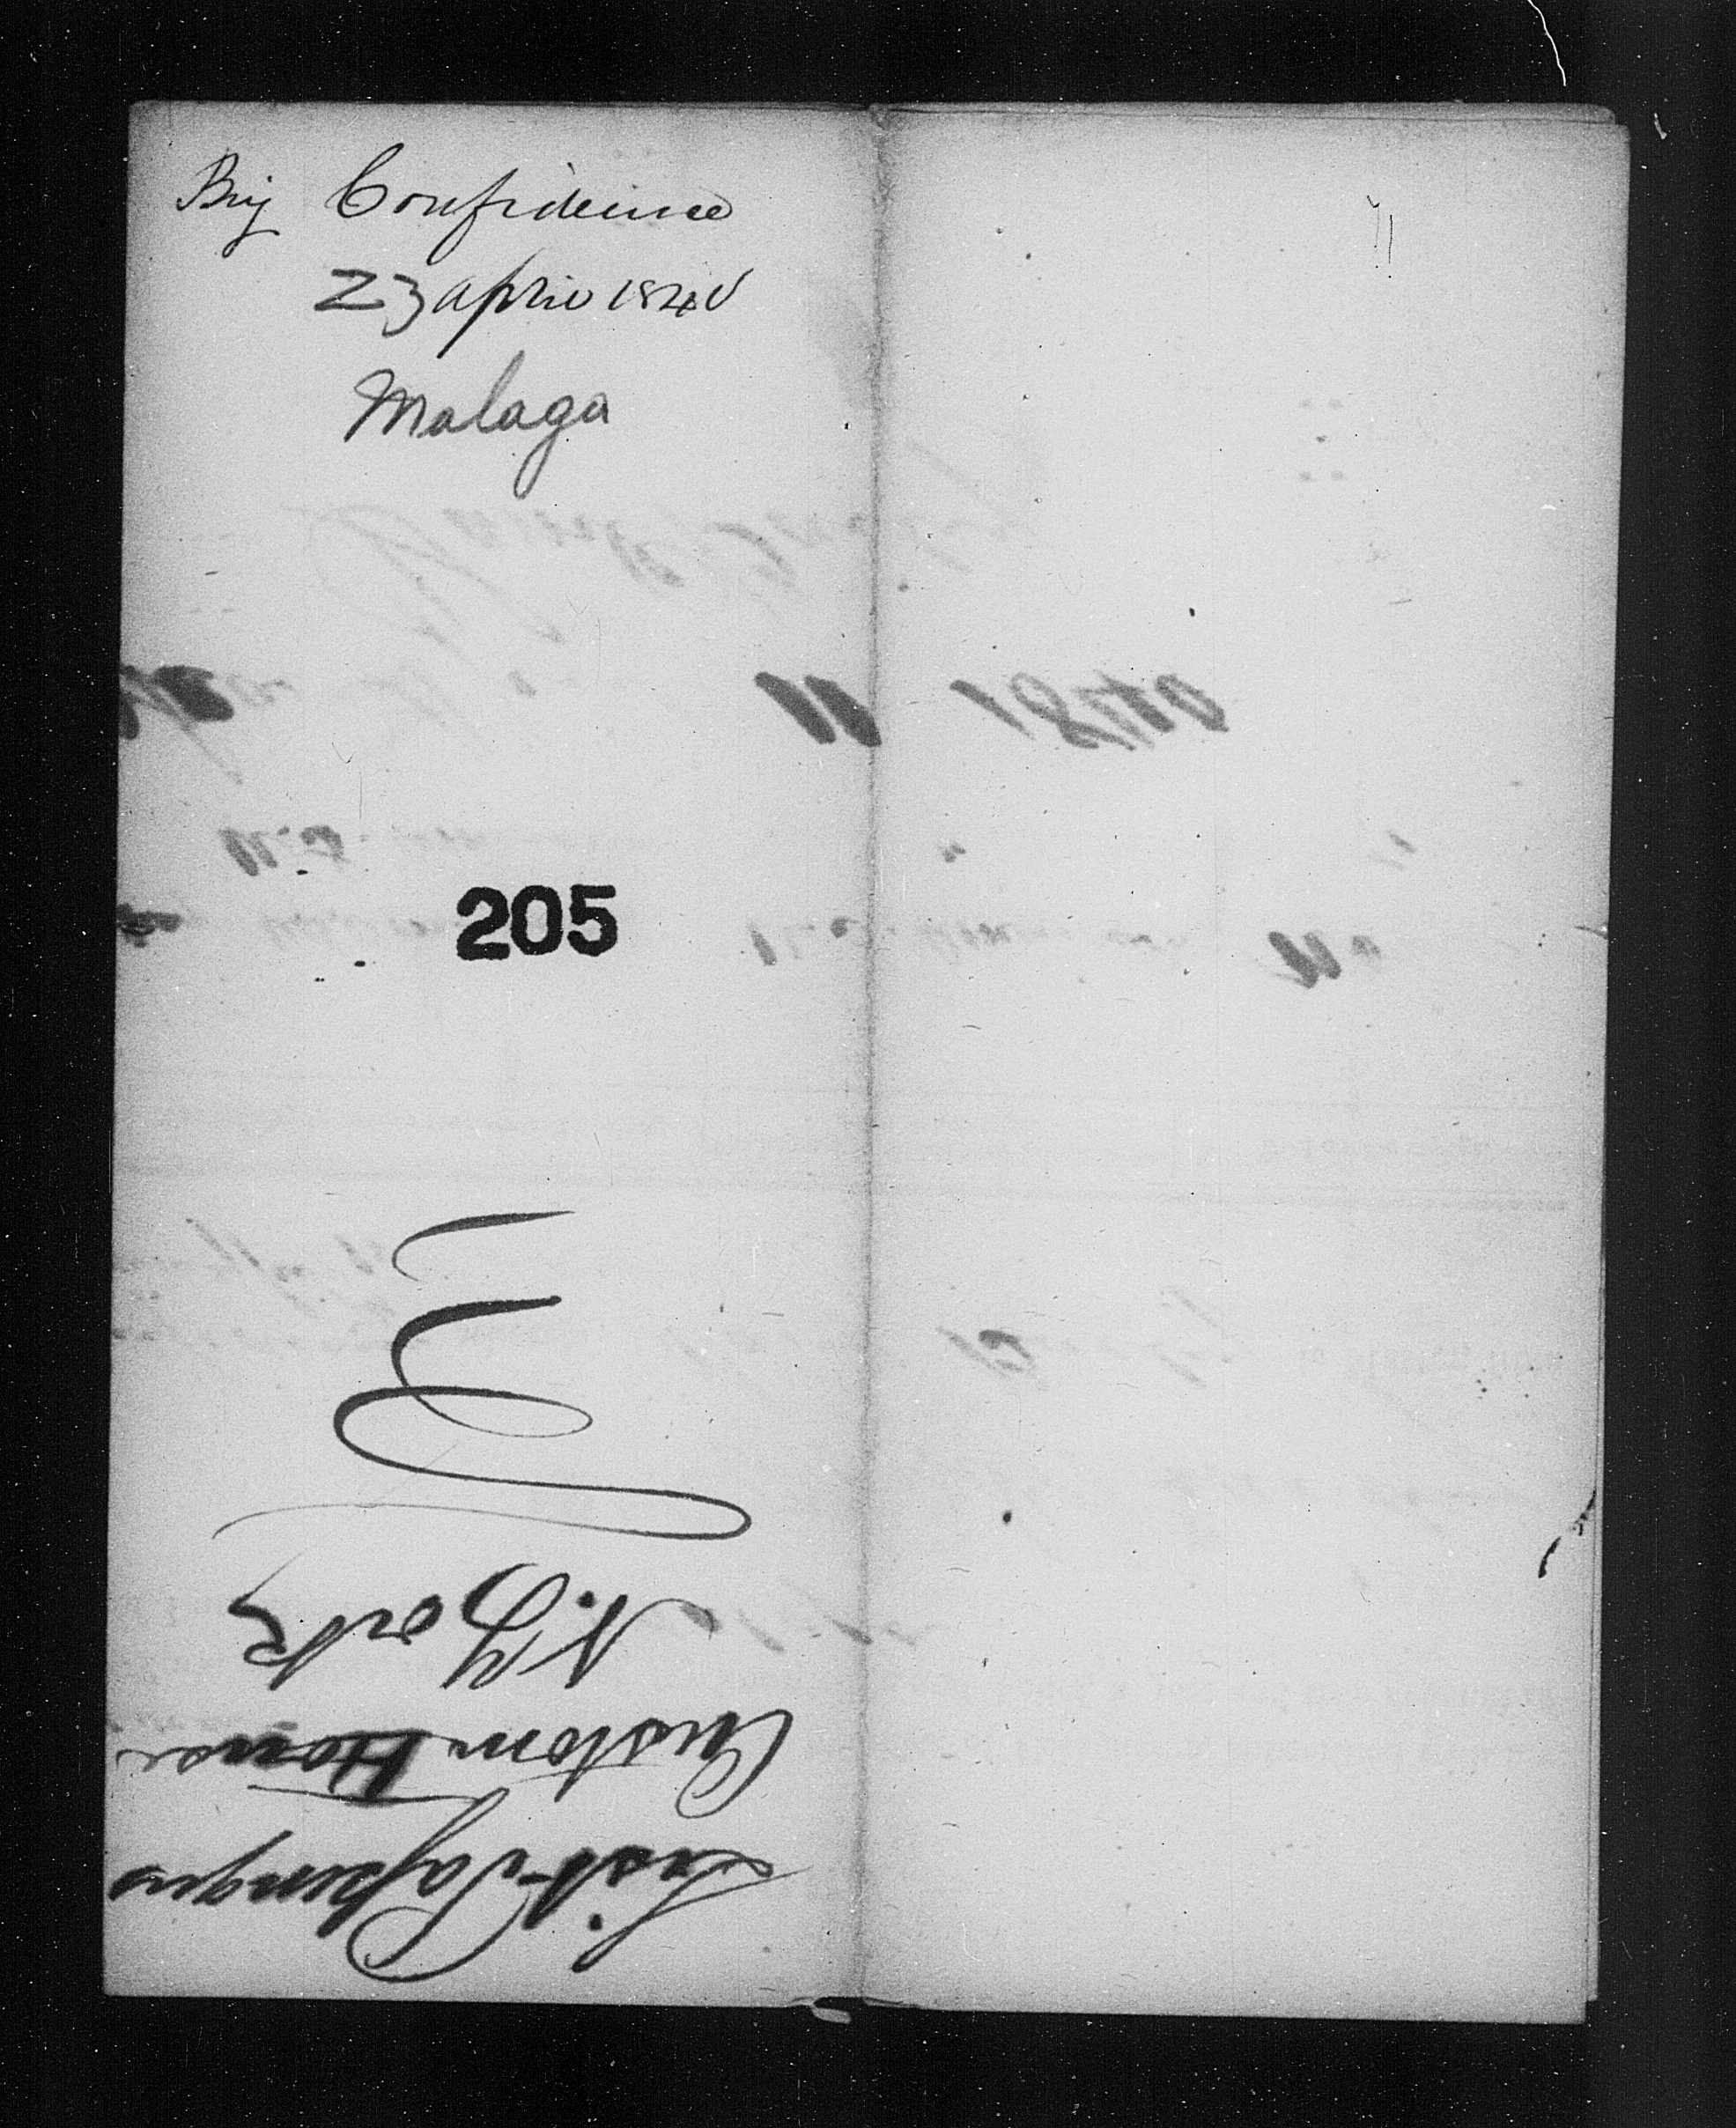 Brig Confidence
23 april 1840
Malaga
205
List Passengers
Custom House
N. York